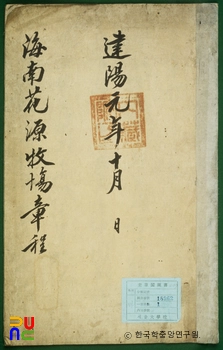 建陽元年十月 日
海南花源牧場章程
ⓒ 한국학중앙연구원